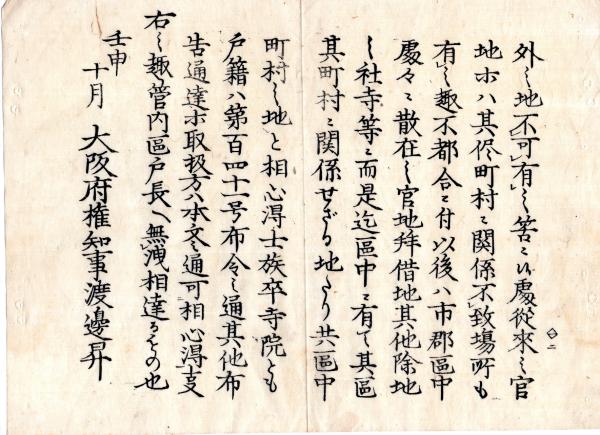 外之地不可有之筈ニ候處從來之官
地ホハ其侭町村ニ関係不致場所も
有之趣不都合ニ付以後ハ市郡區中
處々ニ散在之官地拜借地其他除地
之社寺等ニ而是迄區中ニ有て其區
其町村ニ関係せざる地たり共區中
町村之地と相心得士族卒寺院とも
戸籍ハ第百四十一号布令之通其他布
告通達ホ取扱方ハ本文之通可相心得支
右之趣管内區戸長へ無洩相達るもの也
壬申
十月 大阪府権知事渡邊昇